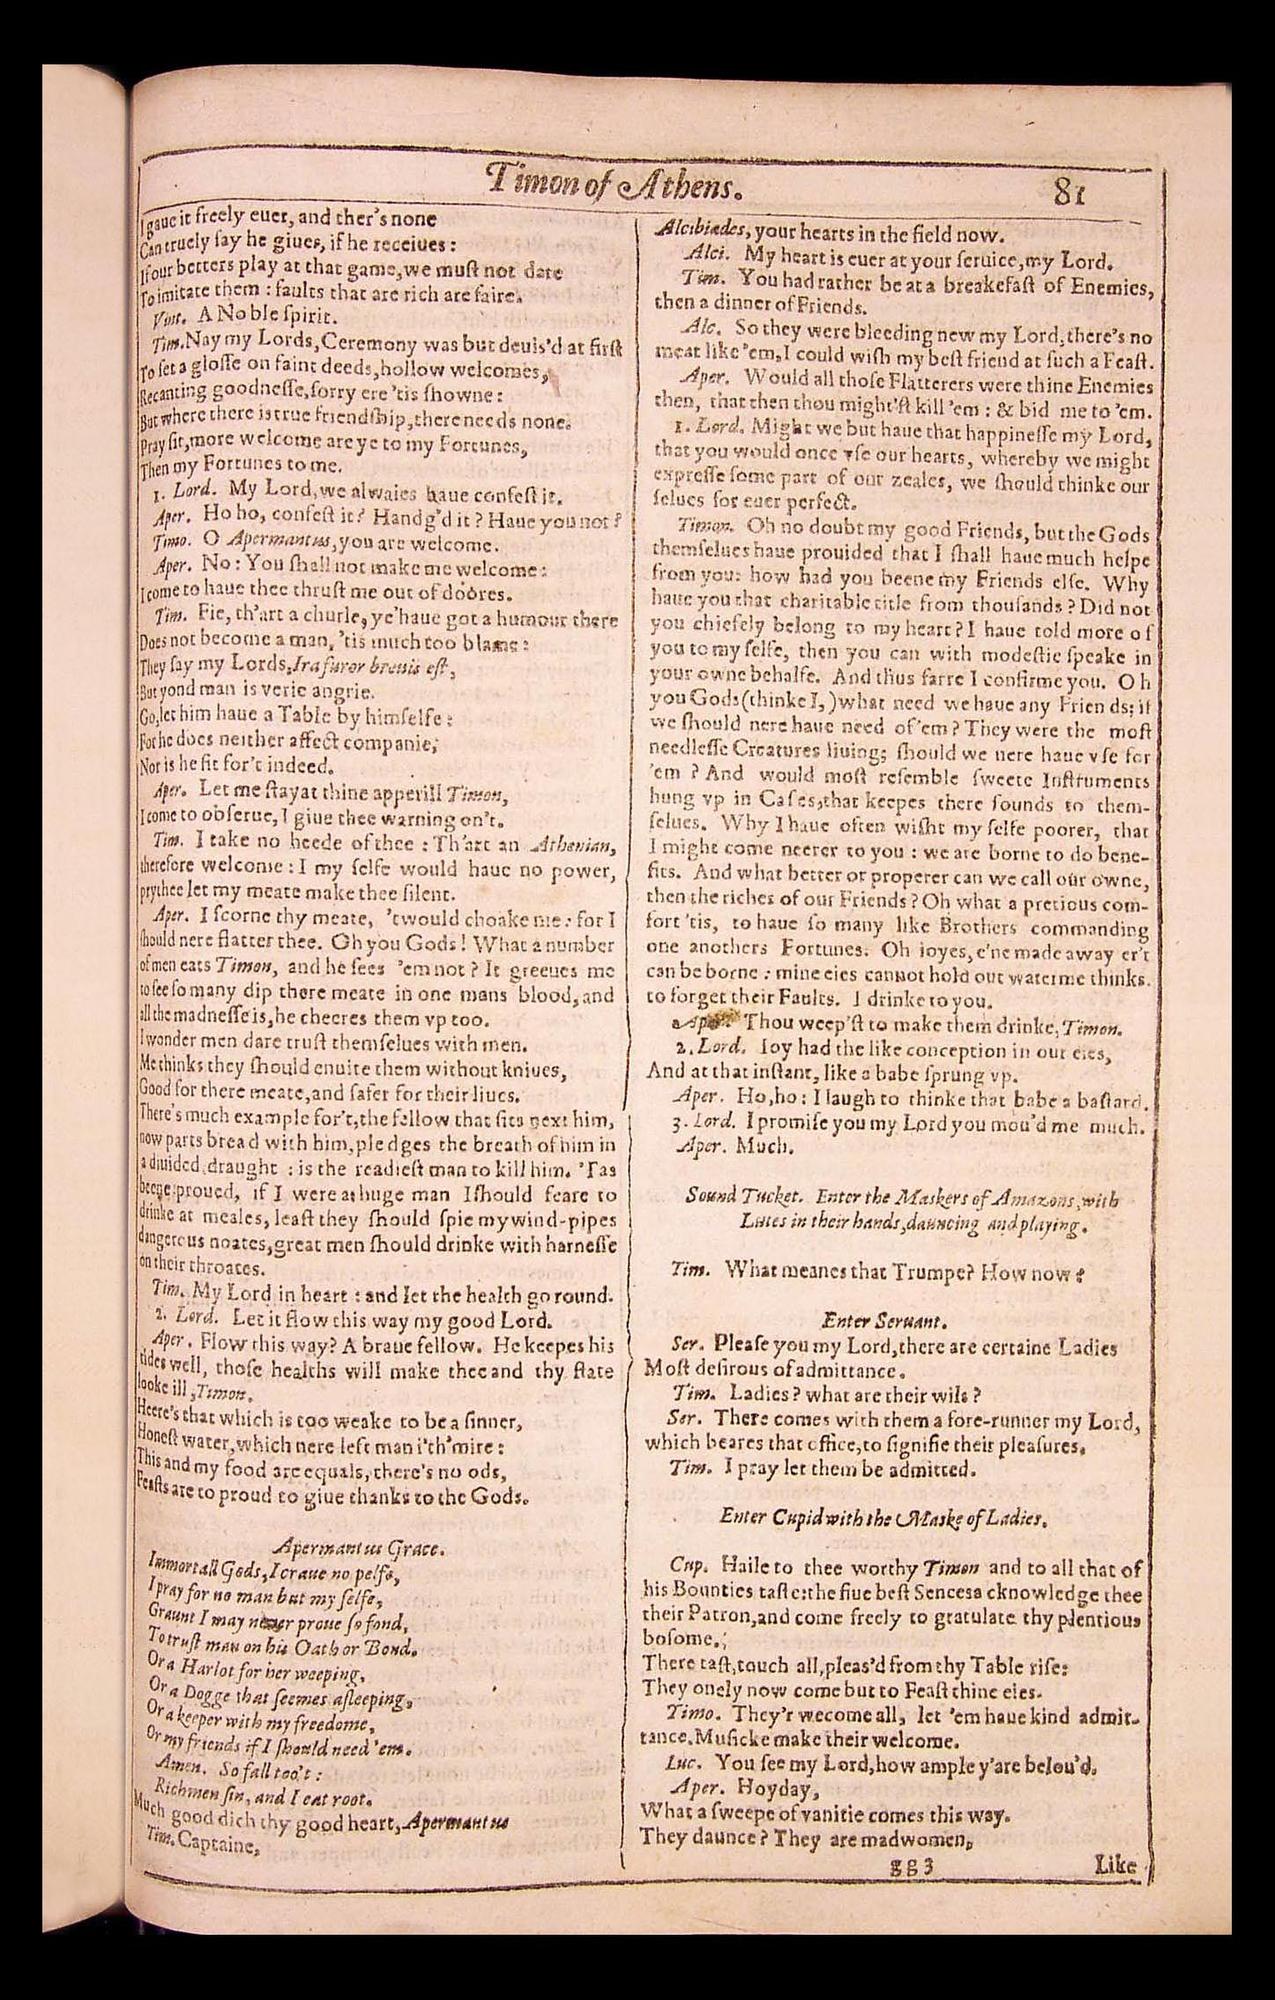 Timon of Athens.
81
I gaue it freely euer, and ther's none
Can truely say he giues, if he receiues:
If our betters play at that game, we must not dare
To imitate them: faults that are rich are faire.
Vint. A Noble spirit.
Tim. Nay my Lords, Ceremony was but deuis'd at first
To set a glosse on faint deeds, hollow welcomes,
Recanting goodnesse, sorry ere 'tis showne:
But where there is true friendship, there needs none.
Pray sit, more welcome are ye to my Fortunes,
Then my Fortunes to me.
1. Lord. My Lord, we alwaies haue confest it.
Aper. Ho ho, confest it? Handg'd it? Haue you not?
Timo. O Apermantus, you are welcome.
Aper. No: You shall not make me welcome:
I come to haue thee thrust me out of doores.
Tim. Fie, th'art a churle, ye'haue got a humour there
Does not become a man, 'tis much too blame:
They say my Lords, Ira furor breuis est,
But yond man is verie angrie.
Go, let him haue a Table by himselfe:
For he does neither affect companie,
Nor is he fit for't indeed.
Aper. Let me stay at thine apperill Timon,
I come to obserue, I giue thee warning on't.
Tim. I take no heede of thee: Th'art an Athenian,
therefore welcome: I my selfe would haue no power,
prythee let my meate make thee silent.
Aper. I scorne thy meate, 'twould choake me: for I
should nere flatter thee. Oh you Gods! What a number
of men eats Timon, and he sees 'em not? It greeues me
to see so many dip there meate in one mans blood, and
all the madnesse is, he cheeres them vp too.
I wonder men dare trust themselues with men.
Me thinks they should enuite them without kniues,
Good for there meate, and safer for their liues.
There's much example for't, the fellow that sits next him,
now parts bread with him, pledges the breath of him in
a diuided draught: is the readiest man to kill him. 'Tas
beene proued, if I were a huge man I should feare to
drinke at meales, least they should spie my wind-pipes
dangerous noates, great men should drinke with harnesse
on their throates.
Tim. My Lord in heart: and let the health go round.
2. Lord. Let it flow this way my good Lord.
Aper. Flow this way? A braue fellow. He keepes his
tides well, those healths will make thee and thy state
looke ill, Timon.
Heere's that which is too weake to be a sinner,
Honest water, which nere left man i'th'mire:
This and my food are equals, there's no ods,
Feasts are to proud to giue thanks to the Gods.
Apermantus Grace.
Immortall Gods, I craue no pelfe,
I pray for no man but my selfe,
Graunt I may neuer proue so fond,
To trust man on his Oath or Bond.
Or a Harlot for her weeping,
Or a Dogge that seemes asleeping,
Or a keeper with my freedome,
Or my friends if I should need 'em.
Amen. So fall too't:
Richmen sin, and I eat root.
Much good dich thy good heart, Apermantus
Tim. Captaine,
Alcibiades, your hearts in the field now.
Alci. My heart is euer at your seruice, my Lord.
Tim. You had rather be at a breakefast of Enemies,
then a dinner of Friends.
Alc. So they were bleeding new my Lord, there's no
meat like 'em, I could wish my best friend at such a Feast.
Aper. Would all those Flatterers were thine Enemies
then, that then thou might'st kill 'em: & bid me to 'em.
1. Lord. Might we but haue that happinesse my Lord,
that you would once vse our hearts, whereby we might
expresse some part of our zeales, we should thinke our
selues for euer perfect.
Timon. Oh no doubt my good Friends, but the Gods
themselues haue prouided that I shall haue much helpe
from you: how had you beene my Friends else. Why
haue you that charitable title from thousands? Did not
you chiefely belong to my heart? I haue told more of
you to my selfe, then you can with modestie speake in
your owne behalfe. And thus farre I confirme you. Oh
you Gods (thinke I,) what need we haue any Friends; if
we should nere haue need of 'em? They were the most
needlesse Creatures liuing; should we nere haue vse for
'em? And would most resemble sweete Instruments
hung vp in Cases, that keepes there sounds to them-
selues. Why I haue often wisht my selfe poorer, that
I might come neerer to you: we are borne to do bene-
fits. And what better or properer can we call our owne,
then the riches of our Friends? Oh what a pretious com-
fort 'tis, to haue so many like Brothers commanding
one anothers Fortunes. Oh ioyes, e'ne made away er't
can be borne: mine eies cannot hold out water me thinks.
to forget their Faults. I drinke to you.
Aper. Thou weep'st to make them drinke, Timon.
2. Lord. Ioy had the like conception in our eies,
And at that instant, like a babe sprung vp.
Aper. Ho, ho: I laugh to thinke that babe a bastard.
3. Lord. I promise you my Lord you mou'd me much.
Aper. Much.
Sound Tucket. Enter the Maskers of Amazons, with
Lutes in their hands, dauncing and playing.
Tim. What meanes that Trumpe? How now?
Enter Seruant.
Ser. Please you my Lord, there are certaine Ladies
Most desirous of admittance.
Tim. Ladies? what are their wils?
Ser. There comes with them a fore-runner my Lord,
which beares that office, to signifie their pleasures.
Tim. I pray let them be admitted.
Enter Cupid with the Maske of Ladies.
Cup. Haile to thee worthy Timon and to all that of
his Bounties taste: the fiue best Sences acknowledge thee
their Patron, and come freely to gratulate thy plentious
bosome.
There tast, touch all, pleas'd from thy Table rise:
They onely now come but to Feast thine eies.
Timo. They'r wecome all, let 'em haue kind admit-
tance. Musicke make their welcome.
Luc. You see my Lord, how ample y'are belou'd.
Aper. Hoyday,
What a sweepe of vanitie comes this way.
They daunce? They are madwomen,
gg3
Like